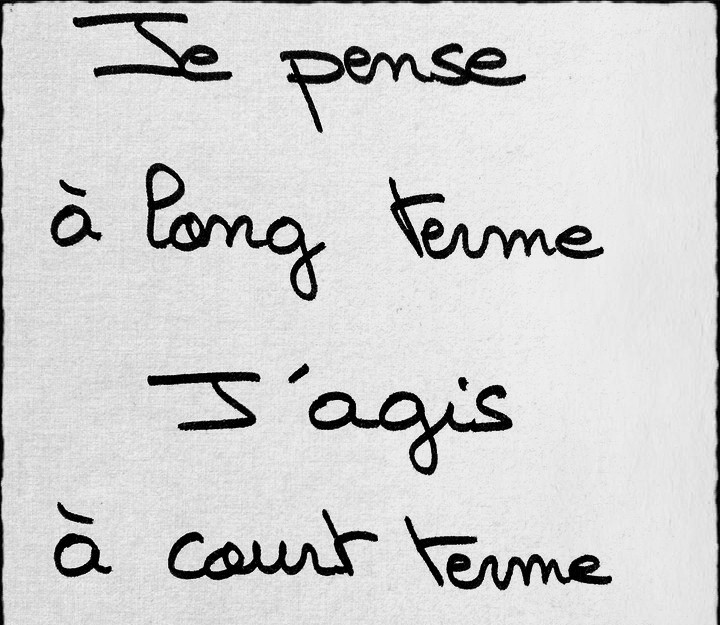 Je pense
à long terme
J'agis
à court terme